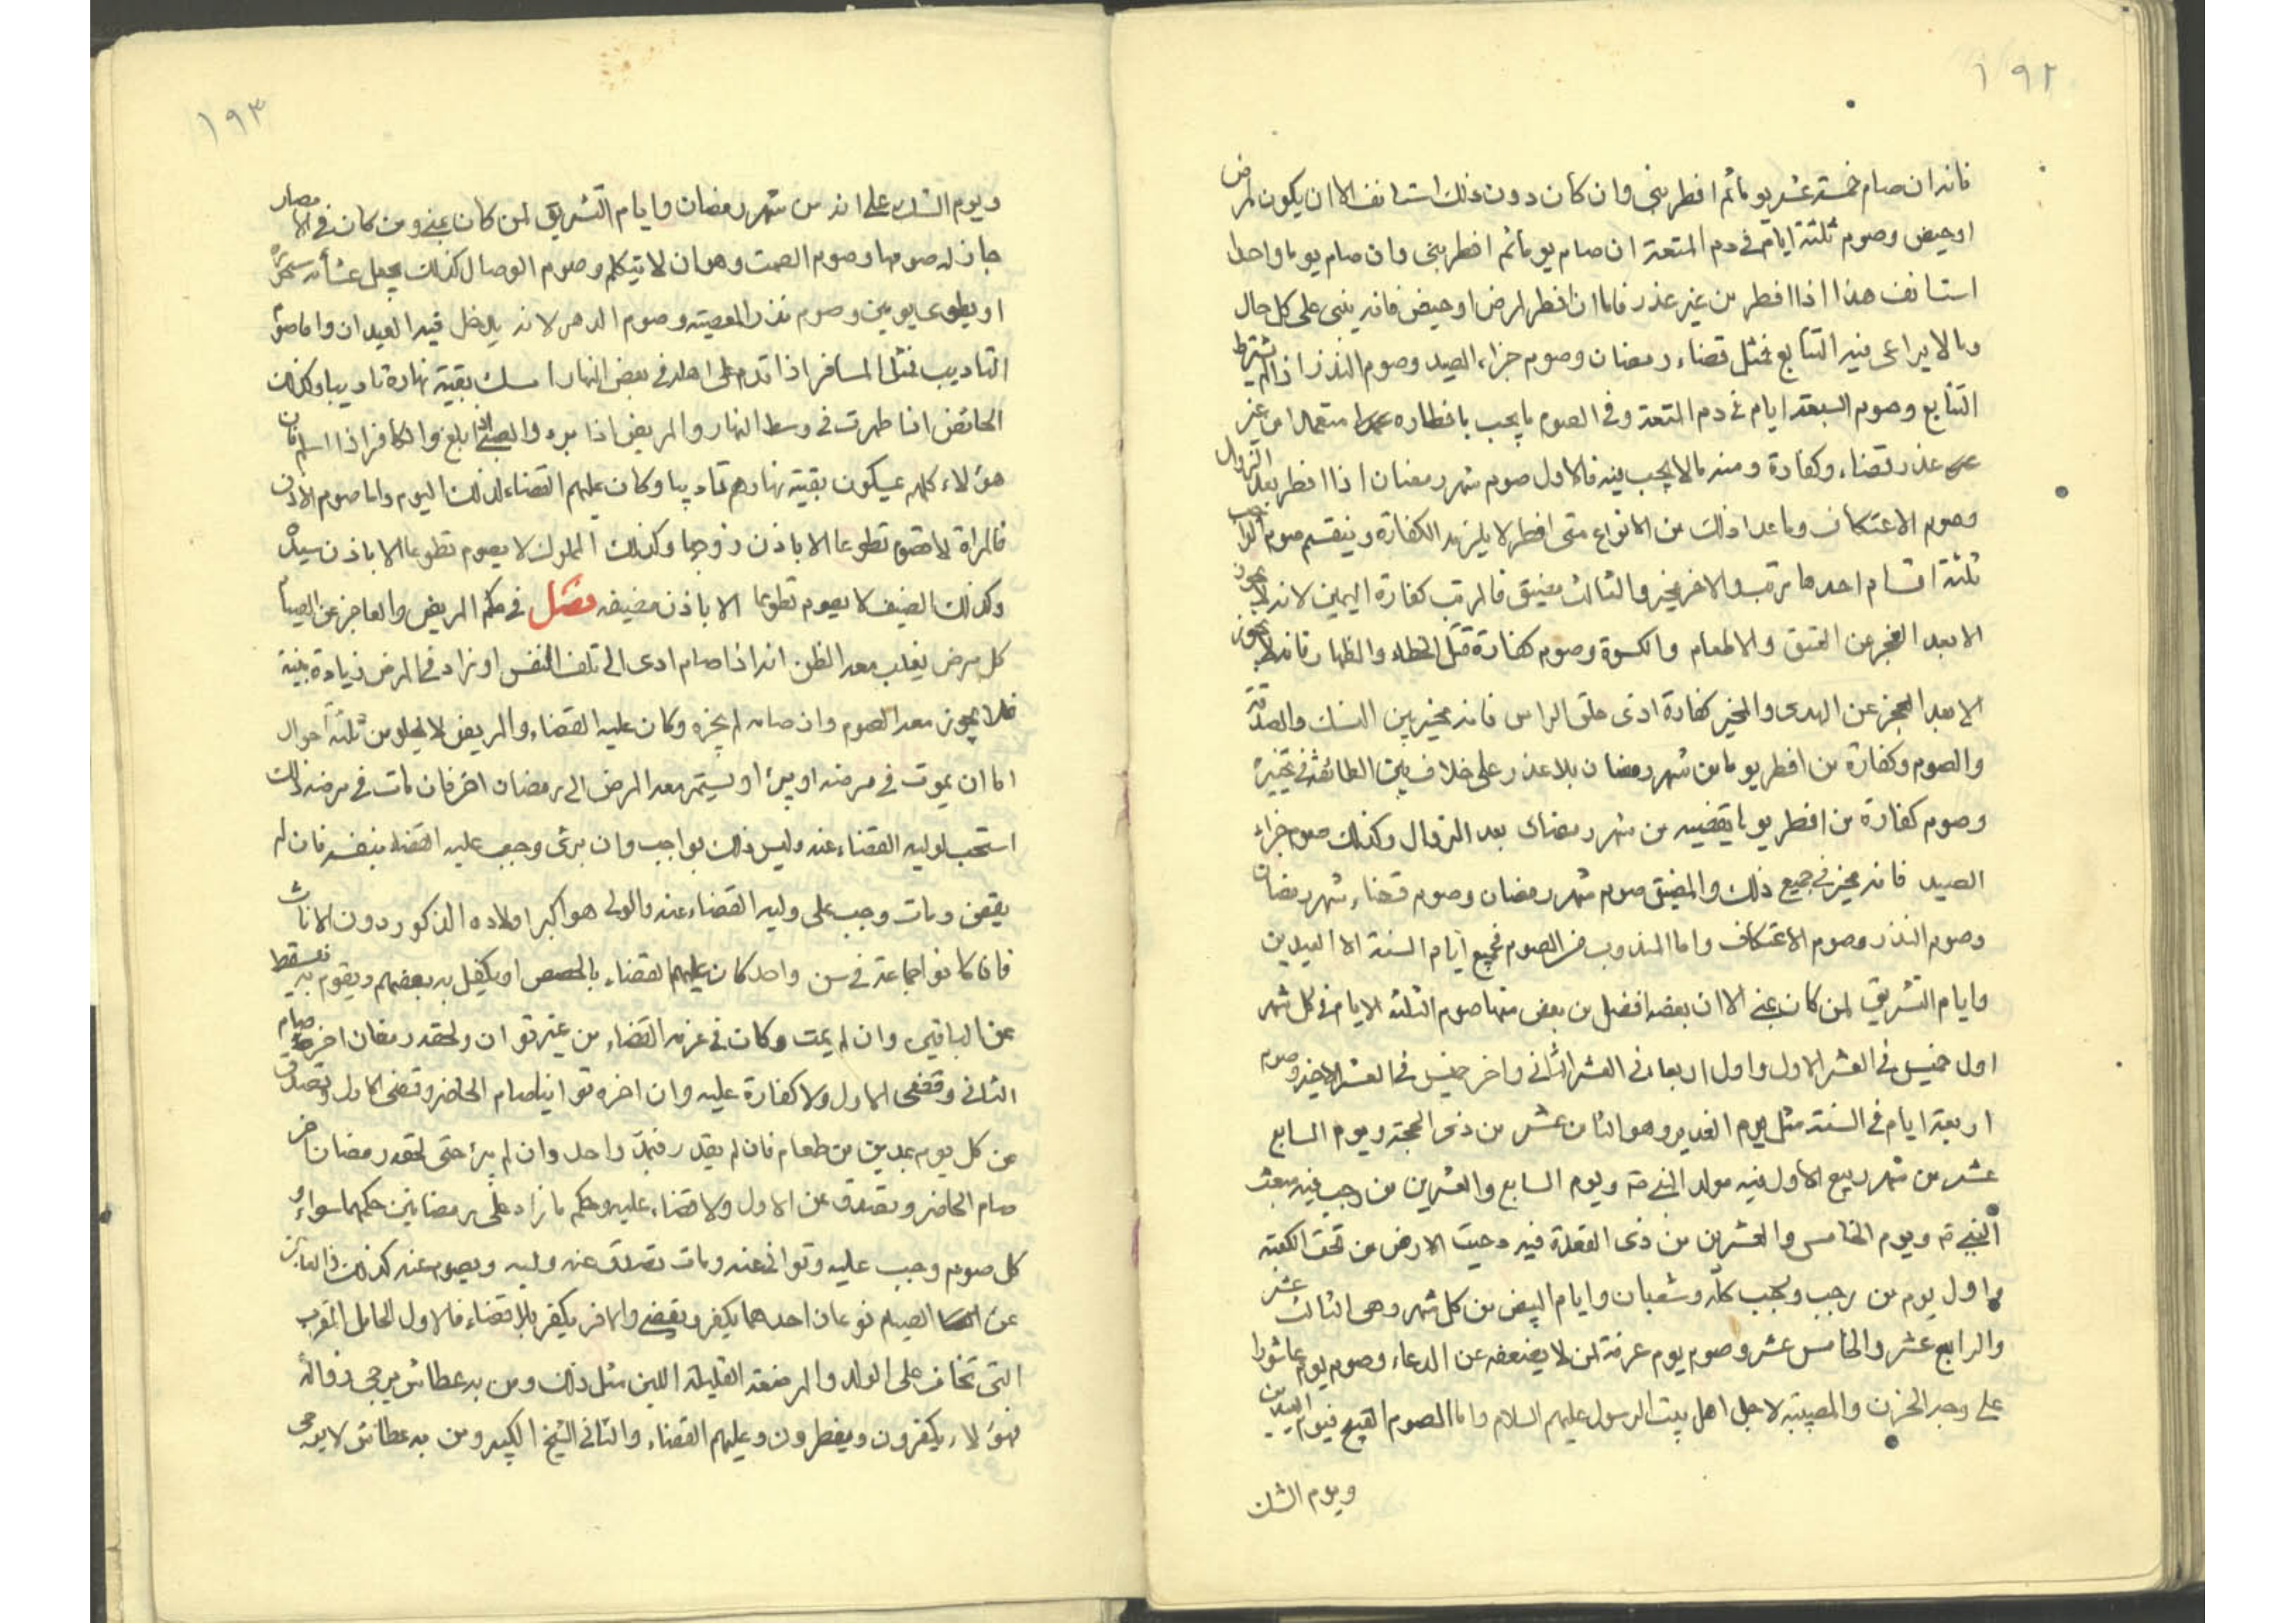 ١٩٢
فانه ان صام خمسة عشر يوما ثم افطر بنى وان كان دون ذلك استانف الا ان يكون لمرض
او حيض وصوم ثلثة ايام فى دم المتعة ان صام يوما ثم افطر بنى وان صام يوما واحدا
استانف هذا اذا افطر من غير عذر فاما ان افطر لمرض او حيض فانه يبنى على كل حال
وما لا يراعى فيه التتابع فمثل قضاء رمضان وصوم جزاء الصيد وصوم النذر اذا لم يشترط
التتابع وصوم السبعة ايام فى دم المتعة وفى الصوم ما يجب بافطاره متعمدا من غير
عذر قضاء وكفارة ومنه ما لا يجب فيه فالاول صوم شهر رمضان اذا افطر بعد الزوال
وصوم الاعتكاف وما عدا ذلك من الانواع متى افطر لا يلزمه الكفارة وينقسم صوم الواجب
ثلثة اقسام احدها مرتب والاخر مخير والثالث مضيق فالمرتب كفارة اليمين لانه لا يجوز
الا بعد العجز عن العتق والاطعام والكسوة وصوم كفارة قتل الخطاء والظهار فانه لا يجوز
الا بعد العجز عن الهدى والمخير كفارة اذى حلق الراس فانه مخير بين النسك والصدقة
والصوم وكفارة من افطر يوما من شهر رمضان بلا عذر على خلاف بين الطائفة فى تخييره
وصوم كفارة من افطر يوما يقضيه من شهر رمضان بعد الزوال وكذلك صوم جزاء
الصيد فانه مخير فى جميع ذلك والمضيق صوم شهر رمضان وصوم قضاء شهر رمضان
وصوم النذر وصوم الاعتكاف واما المندوب من الصوم فجميع ايام السنة الا العيدين
وايام التشريق لمن كان بمنى الا ان بعضه افضل من بعض منها صوم الثلثة الايام فى كل شهر
اول خميس فى العشر الاول واول اربعاء فى العشر الثانى واخر خميس فى العشر الاخير وصوم
اربعة ايام فى السنة مثل يوم الغدير وهو الثامن عشر من ذى الحجة ويوم السابع
عشر من شهر ربيع الاول فيه مولد النبى ص ويوم السابع والعشرين من رجب فيه مبعث
النبى ص ويوم الخامس والعشرين من ذى القعدة فيه دحيت الارض من تحت الكعبة
واول يوم من رجب ورجب كله وشعبان وايام البيض من كل شهر وهى الثالث عشر
والرابع عشر والخامس عشر وصوم يوم عرفة لمن لا يضعفه عن الدعاء وصوم يوم عاشورا
على وجه الحزن والمصيبة لاجل اهل بيت الرسول عليهم السلام واما الصوم القبيح فيوم العيدين
ويوم الشك
١٩٣
ويوم الشك على انه من شهر رمضان وايام التشريق لمن كان بمنى ومن كان فى الامصار
جاز له صومها وصوم الصمت وهو ان لا يتكلم وصوم الوصال كذلك يجعل عشأئه سحوره
او يطوى يومين وصوم نذر المعصية وصوم الدهر لانه يدخل فيه العيدان واما صوم
التاديب فمثل المسافر اذا قدم على اهله فى بعض النهار امسك بقية نهاره تاديبا وكذلك
الحائض اذا طهرت فى وسط النهار والمريض اذا برء والصبى اذا بلغ والكافر اذا اسلم فان
هؤلاء كلهم يمسكون بقية نهارهم تاديبا وكان عليهم القضاء لذلك اليوم واما صوم الاذن
فالمراة لا تصوم تطوعا الا باذن زوجها وكذلك المملوك لا يصوم تطوعا الا باذن سيده
وكذلك الضيف لا يصوم تطوعا الا باذن مضيفه فصل فى حكم المريض والعاجز عن الصيام
كل مرض يغلب معه الظن انه اذا صام ادى الى تلف النفس او زاد فى المرض زيادة بينة
فلا يجوز معه الصوم وان صامه لم يجزه وكان عليه القضاء والمريض لا يخلو من ثلثة احوال
اما ان يموت فى مرضه او يبرأ او يستمر معه المرض الى رمضان اخر فان مات فى مرضه ذلك
استحب لوليه القضاء عنه وليس ذلك بواجب وان برئ وجب عليه القضاء بنفسه فان لم
يقض ومات وجب على وليه القضاء عنه والولى هو اكبر اولاده الذكور دون الاناث
فان كانوا جماعة فى سن واحد كان عليهم القضاء بالحصص او يكفل به بعضهم ويقوم به فيسقط
عن الباقين وان لم يمت وكان فى عزمه القضاء من غير توان ولحقه رمضان اخر صام
الثانى وقضى الاول ولا كفارة عليه وان اخره توانيا صام الحاضر وقضى الاول وتصدق
عن كل يوم بمدين من طعام فان لم يقدر فبمد واحد وان لم يبرأ حتى لحقه رمضان اخر
صام الحاضر وتصدق عن الاول ولا قضاء عليه وحكم ما زاد على رمضانين حكمهما سواء و
كل صوم وجب عليه وتوانى عنه ومات تصدق عنه وليه ويصوم عنه كذلك والعاجز
عن الصيام نوعان احدهما يكفر ويقضى والاخر يكفر بلا قضاء فالاول الحامل المقرب
التى تخاف على الولد والمرضعة القليلة اللبن مثل ذلك ومن به عطاش يرجى زواله
فهؤلاء يكفرون ويفطرون وعليهم القضاء والثانى الشيخ الكبير ومن به عطاش لا يرجى